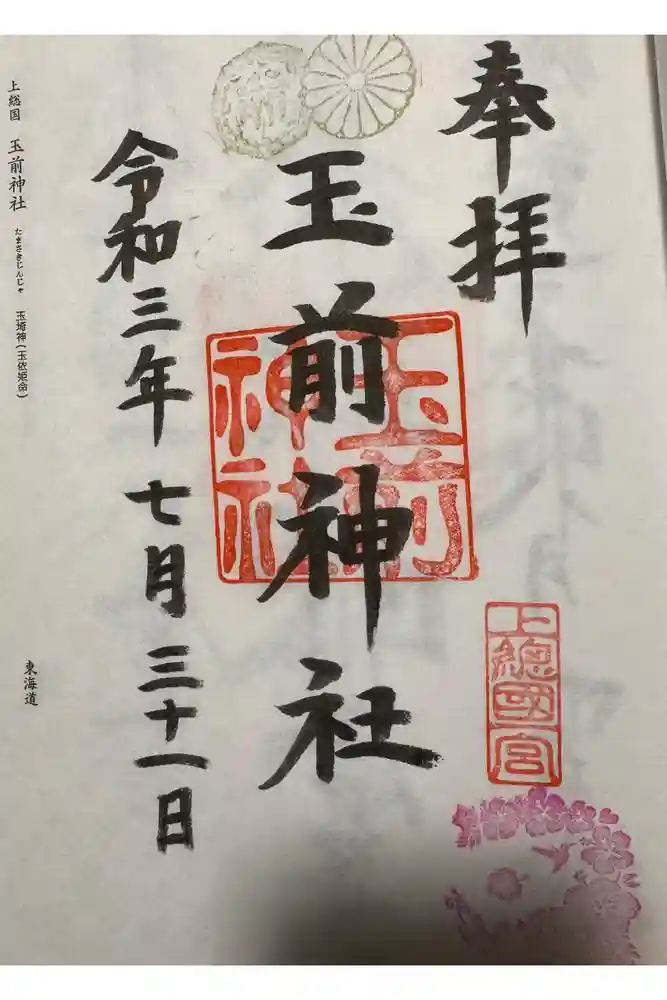 奉拝
上總國一宮
玉前神社
玉前神社
令和三年七月三十一日
上総国 玉前神社 たまさきじんじゃ 玉埼神(玉依姫命)
東海道